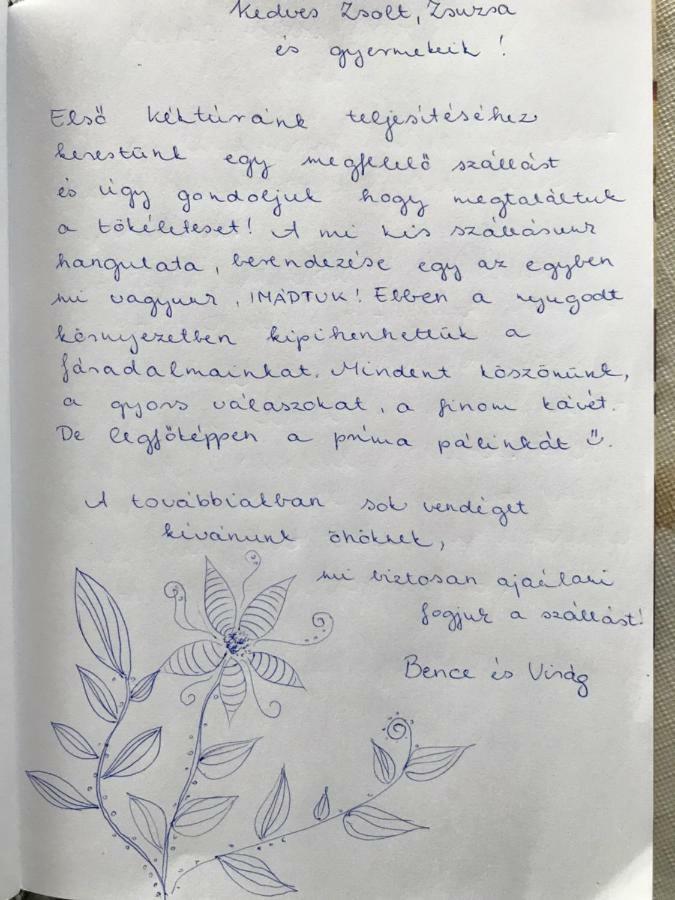 Kedves Zsolt, Zsuzsa
és gyermekeik!
Első kéktúránk teljesítéséhez
kerestünk egy megfelelő szállást
és úgy gondoljuk hogy megtaláltuk
a tökéleteset! A mi kis szállásunk
hangulata, berendezése egy az egyben
mi vagyunk, IMÁDTUK! Ebben a nyugodt
környezetben kipihenhettük a
fáradalmainkat. Mindent köszönünk,
a gyors válaszokat, a finom kávét.
De legfőképpen a príma pálinkát Ü.
A továbbiakban sok vendéget
kívánunk önöknek,
mi biztosan ajánlani
fogjuk a szállást!
Bence és Virág